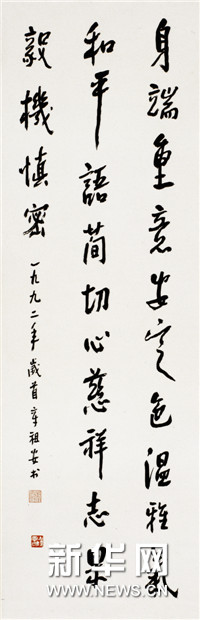 身端重意安定色温雅氣
和平語简切心慈祥志果
毅機慎密
一九九二年歲首辛祖安书
新华网
WWW.NEWS.CN